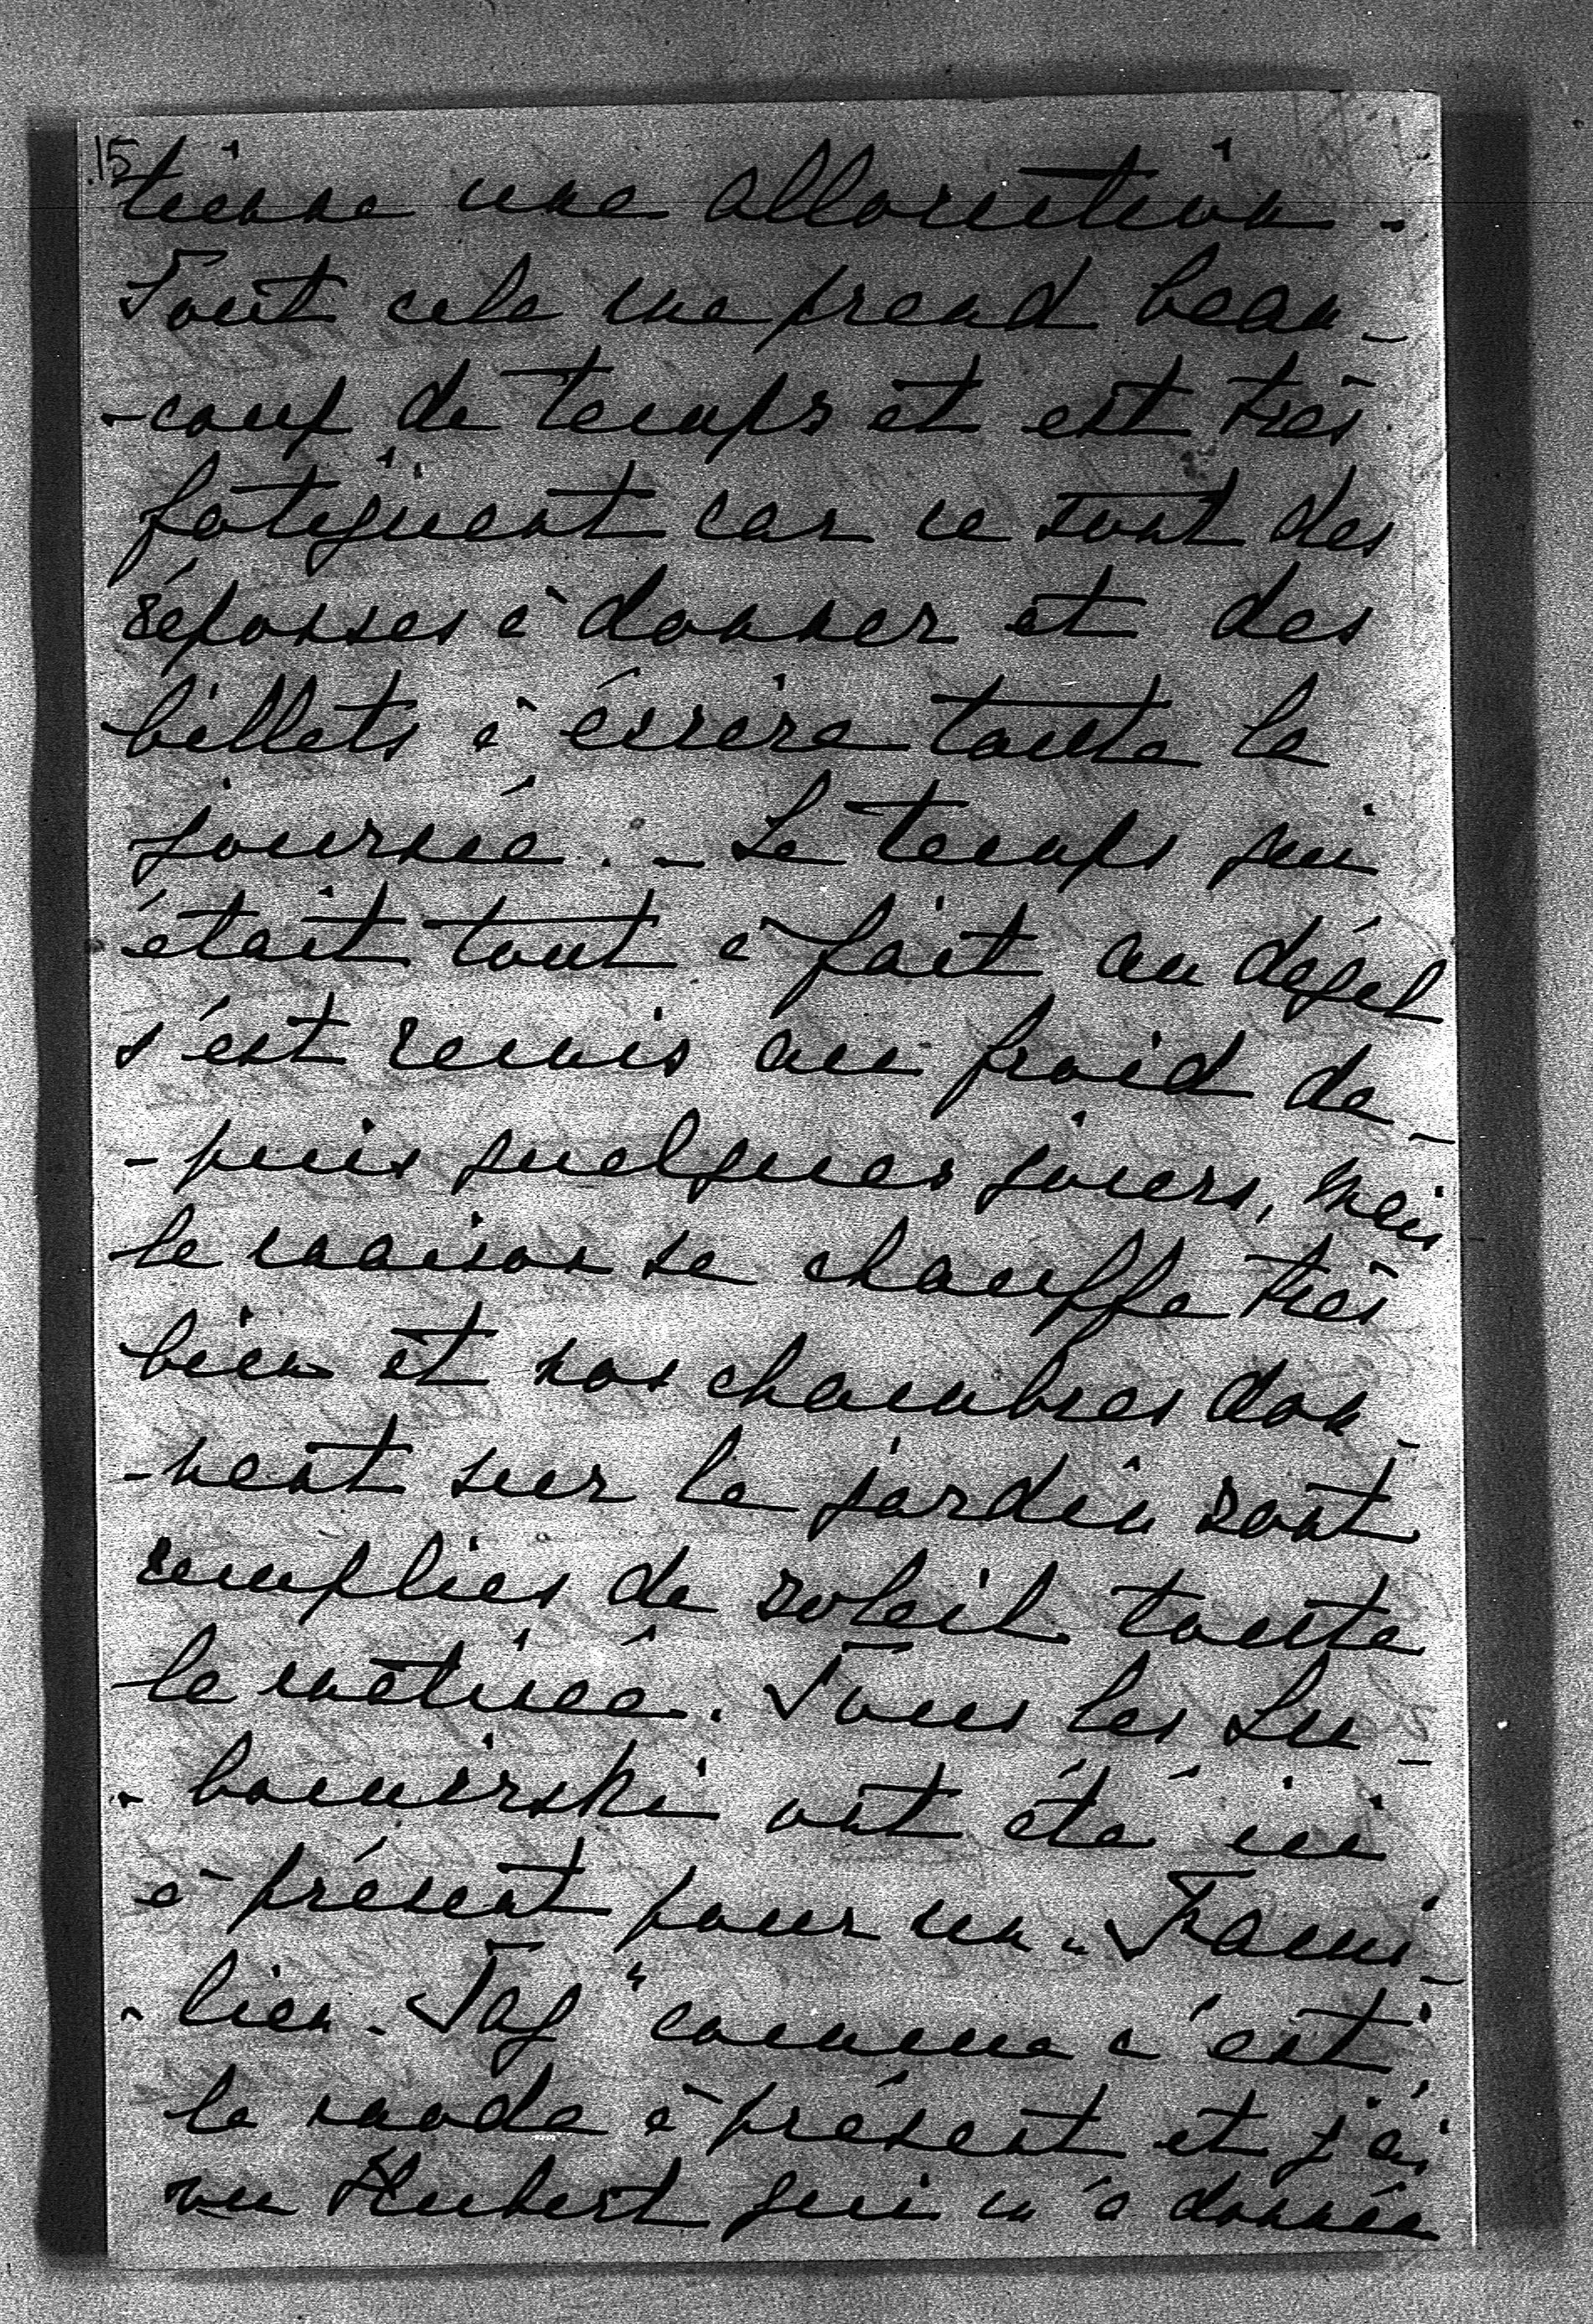 15
tienne une allocution.
Tout cela me prend beau-
-coup de temps et est très
fatiguent car ce sont des
réponses à donner et des
billets à écrire toute la
journée. - Le temps qui
était tout à fait au dégel
s'est remis au froid de-
-puis quelques jours, mais
la maison se chauffe très
bien et nos chambres don-
-nent sur le jardin sont
remplies de soleil toute
la matinée. Tous les Lu-
-bomirski ont été ici
à présent pour un "Fami-
-lien-Tag" comme c'est
la mode à présent et j'ai
vu Hubert qui m'a donnée